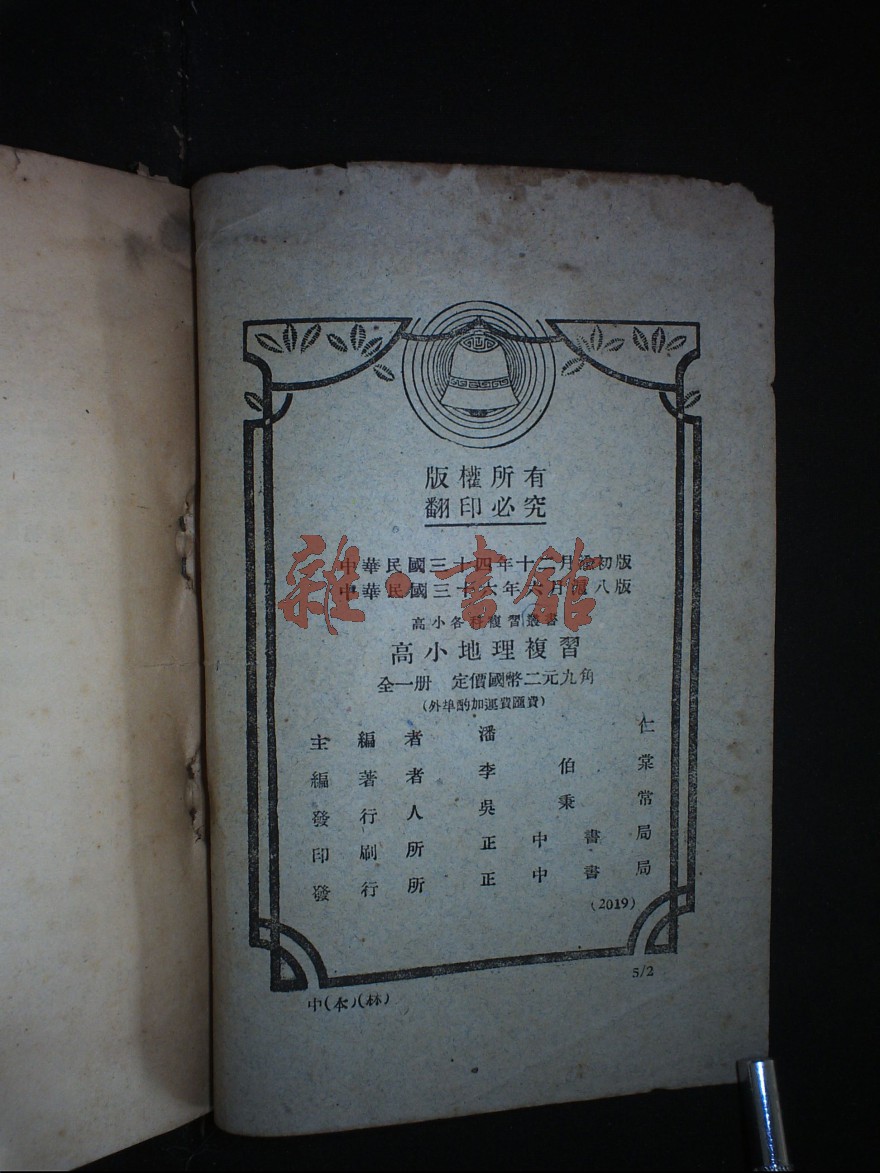 版權所有
翻印必究
中華民國三十四年十二月渝初版
中華民國三十六年六月滬八版
高小各科複習叢書
高小地理複習
全一册 定價國幣二元九角
(外埠酌加運費匯費)
主編者 潘仁
編著者 李伯棠
發行人 吳秉常
印刷所 正中書局
發行所 正中書局
(2019)
5/2
中(本)(林)
雜·書館